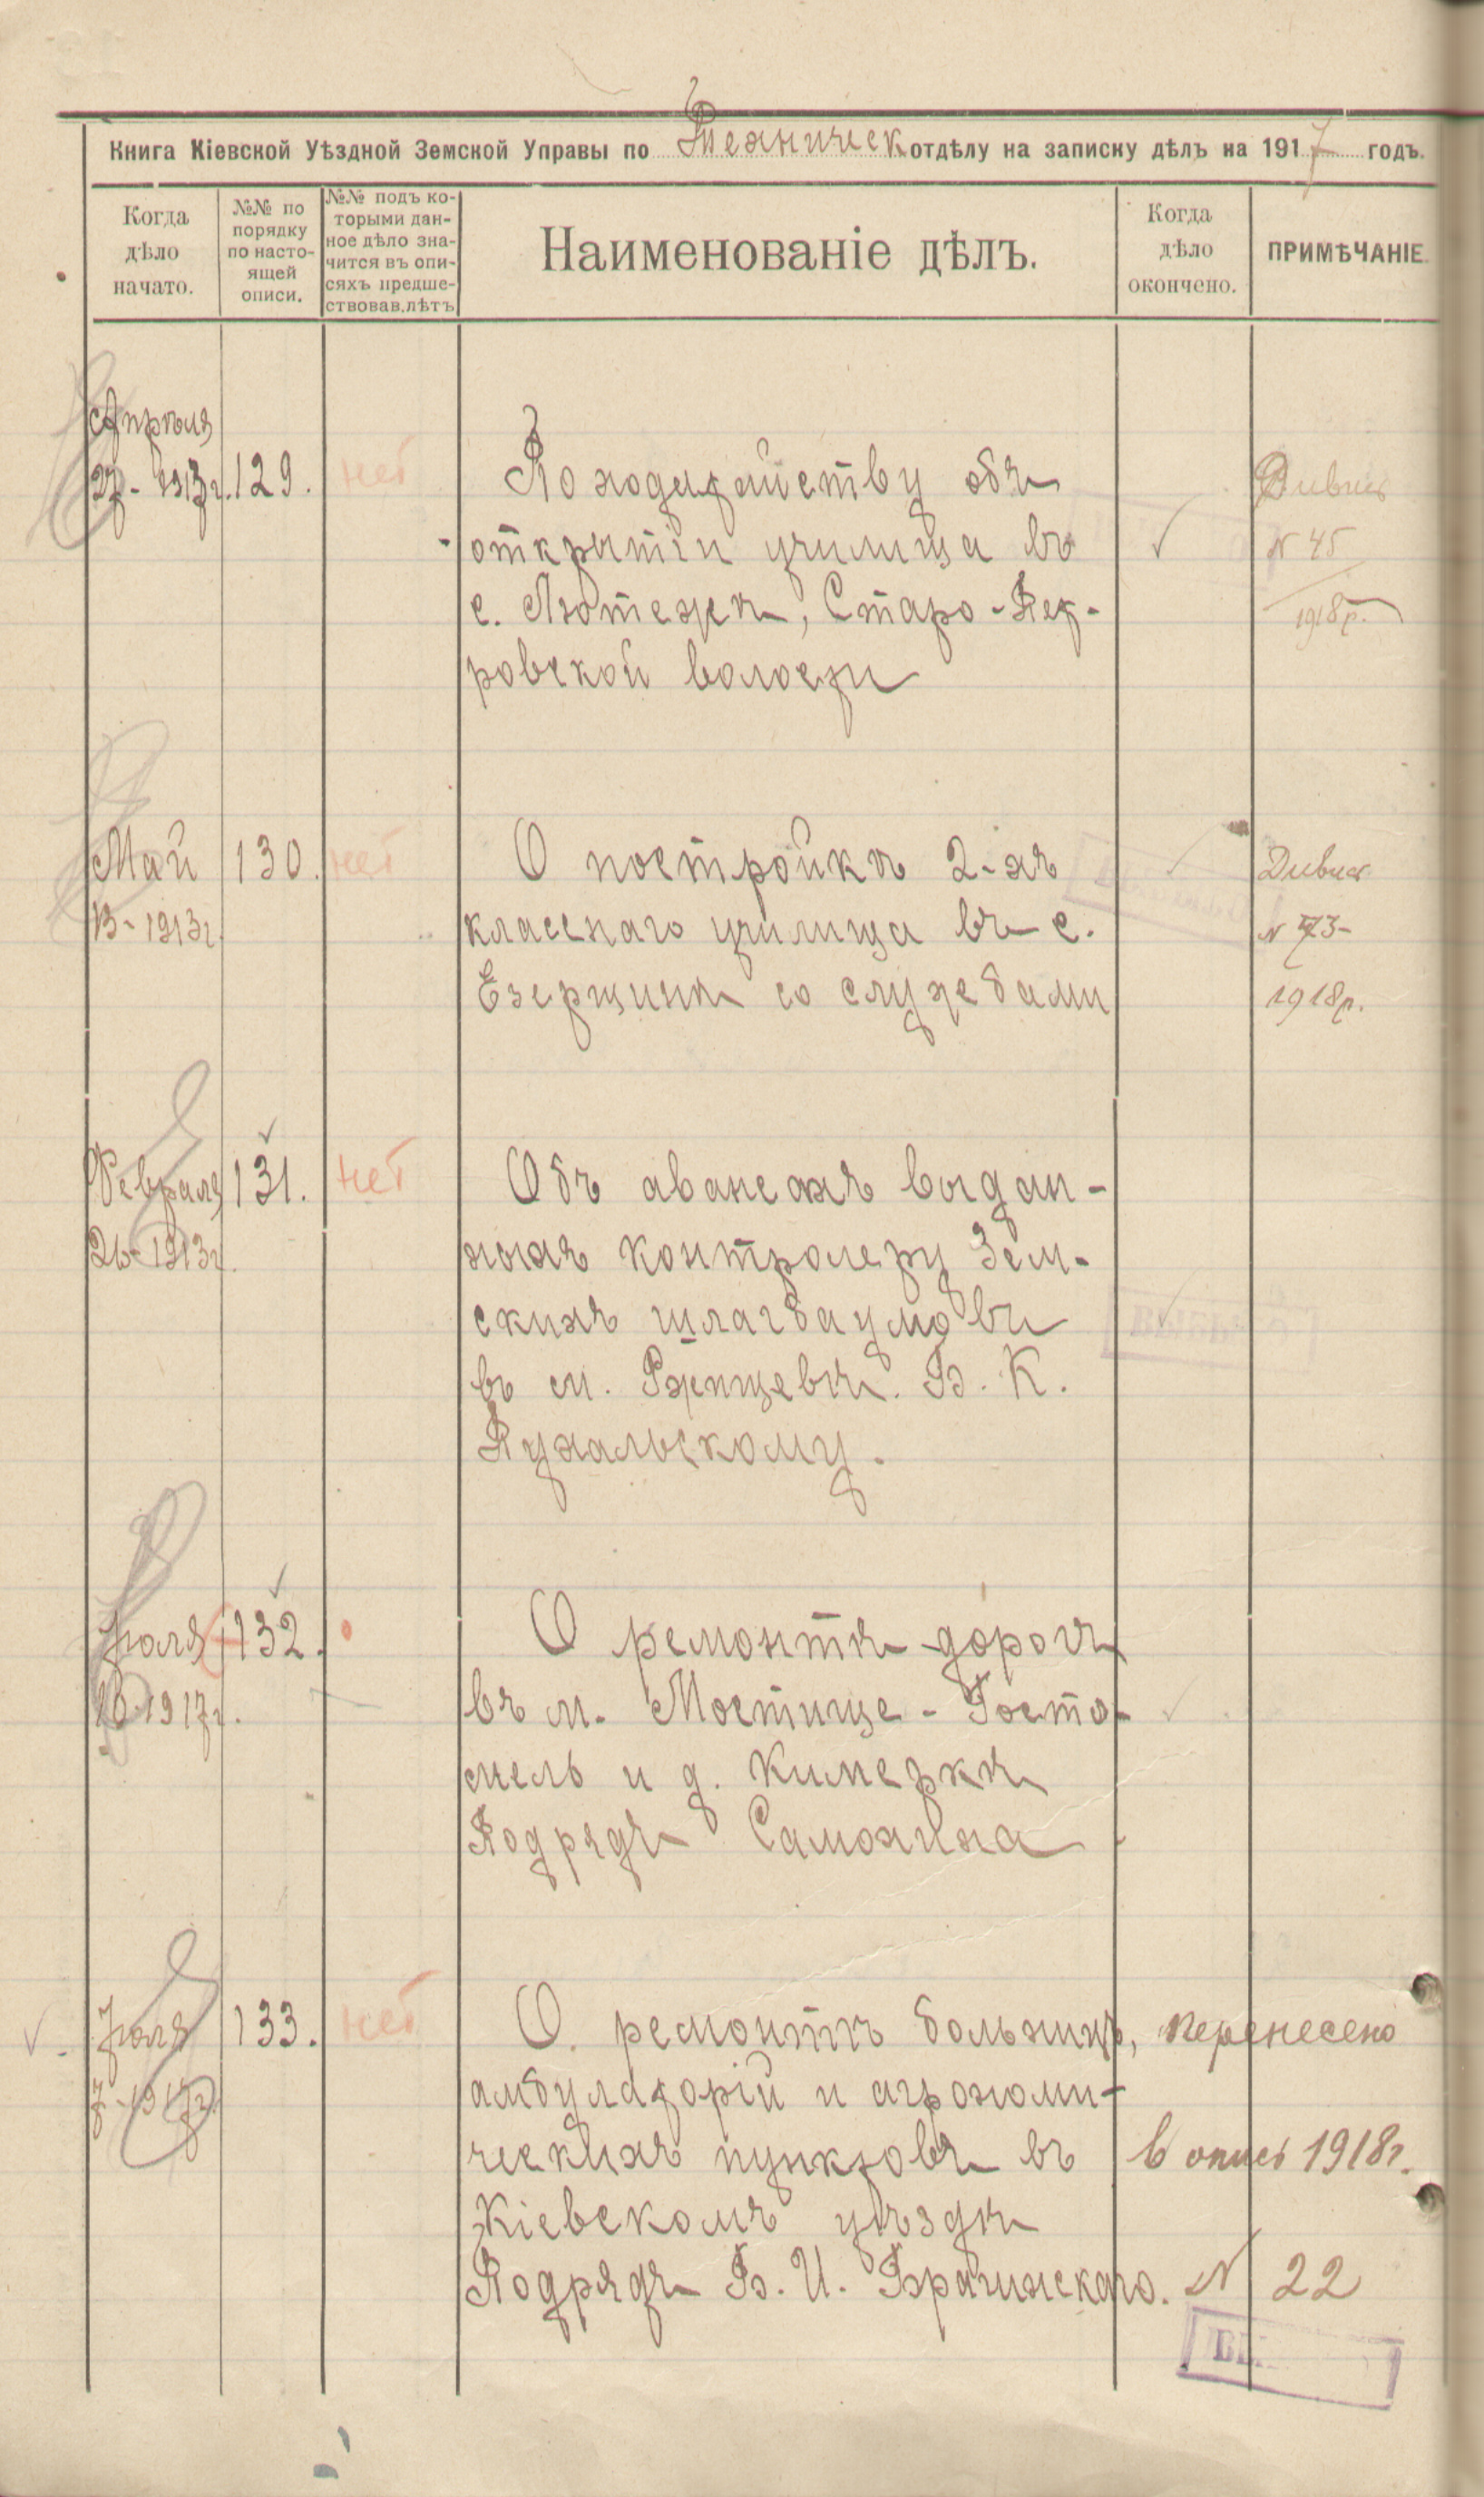 Книга Кіевской Уѣздной Земской Управы по Техническ отдѣлу на записку дѣлъ на 1917 годъ.
Когда дѣло начато.
№№ по порядку по насто-ящей описи.
№№ подъ ко-торыми дан-ное дѣло зна-чится въ опи-сяхъ предше-ствовав.лѣтъ
Наименованіе дѣлъ.
Когда дѣло окончено.
ПРИМѢЧАНІЕ.
Апрѣля
27- 1913г. 129. нет
По ходатайству объ
открытіи училища въ
с. Лютежѣ, Старо-Пет-
ровской волости
Дивись
N 45
1918р.
Май
13- 1913г.
130. нет
О постройкѣ 2-хъ
класснаго училища въ с.
Езерщинѣ со службами
Дивись
N 73-
1918р.
Февраля
26- 1913г.
131. нет
Объ авансахъ выдан-
ныхъ контролеру Зем-
скихъ шлагбаумовъ
въ м. Ржищевѣ. В. К.
Пухальскому.
Іюля
16. 1917г.
132.
О ремонтѣ дорогъ
въ м. Мостище - Госто-
мель и д.
Подрядъ Самохина
Іюля
7- 1917г.
133. нет
О. ремонтѣ больницъ,
амбулаторій и агрономи-
ческихъ пунктовъ въ
Кіевскомъ уѣздѣ
Подрядъ В. И. Брагинскаго.
перенесено
в опись 1918г.
N 22